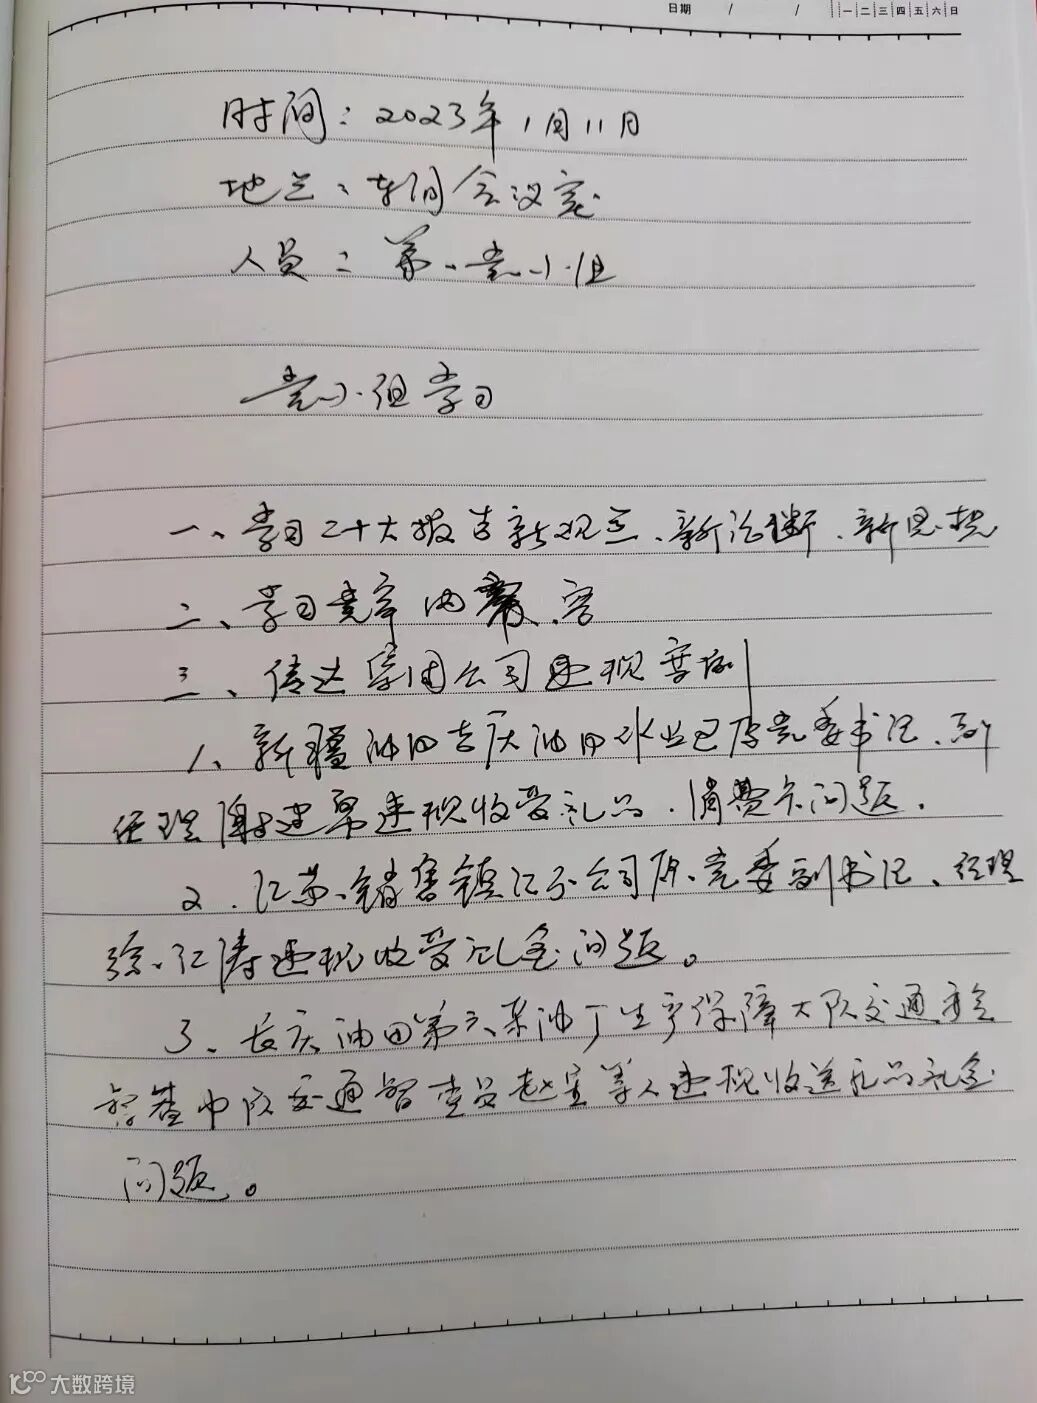 日期 / / 一 二 三 四 五 六 日
时间：2023年1月11日
地点：车间会议室
人员：第一党小组
党小组学习
一、学习二十大报告新观点、新论断、新思想
二、学习党章内容
三、传达集团公司违规案例
1、新疆油田吉庆油田作业区原党委书记、副
经理谢建勇违规收受礼品、消费卡问题.
2.江苏销售镇江分公司原党委副书记、经理
徐江涛违规收受礼金问题。
3、长庆油田第六采油厂生产保障大队交通安全
中队交通督查员赵星等人违规收送礼品礼金
问题。
大数跨境